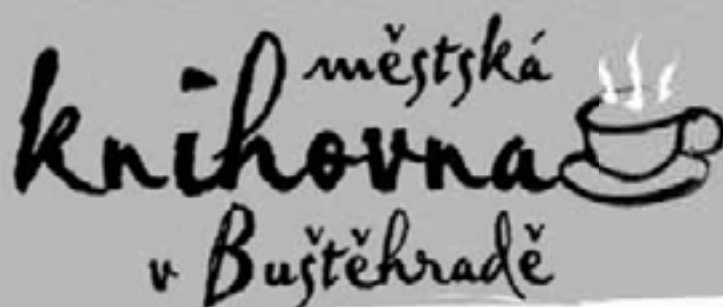 městská
knihovna
v Buštěhradě